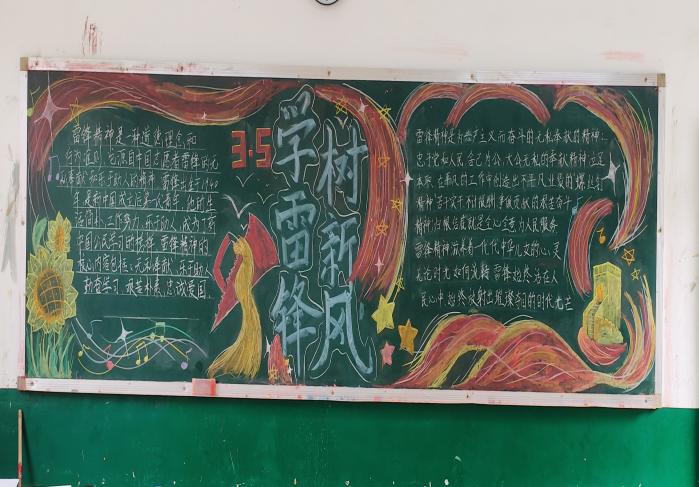 雷锋精神是一种道德理念和
行为准则,它源自中国志愿者雷锋的无
私奉献和乐于助人的精神。雷锋出生于1940
年,是新中国成立后第一代青年,他的生
活简朴,工作努力,乐于助人,成为了
中国人民学习的榜样。雷锋精神的
核心内容包括:无私奉献、乐于助人、
勤奋学习、艰苦朴素、忠诚爱国。
3·5
学雷锋
树新风
雷锋精神是为共产主义而奋斗的无私奉献的精神;
忠于党和人民、舍己为公、大公无私的奉献精神;立足
本职、在平凡的工作中创造出不平凡业绩的“螺丝钉
精神”;苦干实干、不计报酬、争做贡献的艰苦奋斗
精神;归根结底就是全心全意为人民服务
雷锋精神滋养着一代代中华儿女的心灵
无论时光如何流转,雷锋始终活在人
民心中,始终放射出璀璨夺目的时代光芒